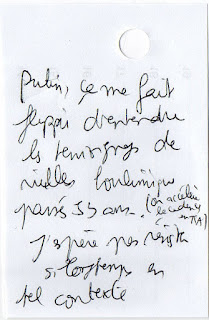 putain, ça me fait
flipper d'entendre
les temoignages de
vieilles boulimiques
passés 55 ans. (on accélère
la cadence
en TCA)
J'espère pas résister
si longtemps en
tel contexte